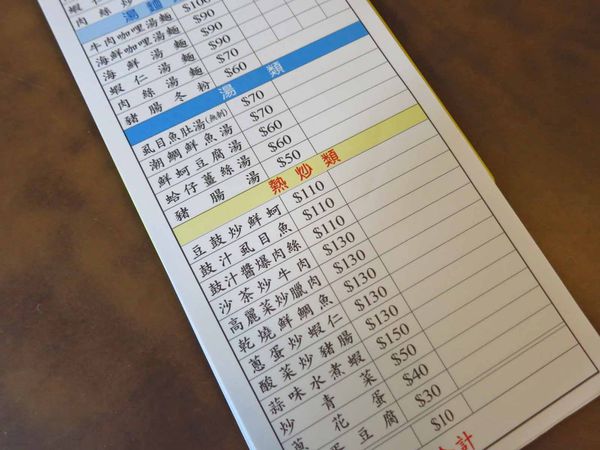 蝦仁炒
肉絲炒
湯麵
牛肉咖哩湯麵 $100
海鮮咖哩湯麵 $90
海鮮湯麵 $90
蝦仁湯麵 $90
肉絲湯麵 $70
豬腸冬粉 $60
湯類
虱目魚肚湯(無刺) $70
潮鯛鮮魚湯 $70
鮮蚵豆腐湯 $60
蛤仔薑絲湯 $60
豬腸湯 $50
熱炒類
豆鼓炒鮮蚵 $110
鼓汁虱目魚 $110
鼓汁醬爆肉絲 $110
沙茶炒牛肉 $130
高麗菜炒臘肉 $130
乾燒鮮鯛魚 $130
蔥蛋炒蝦仁 $130
酸菜炒豬腸 $130
蒜味水煮蝦 $150
炒青菜 $50
蔥花蛋 $40
蛋豆腐 $30
$10
計